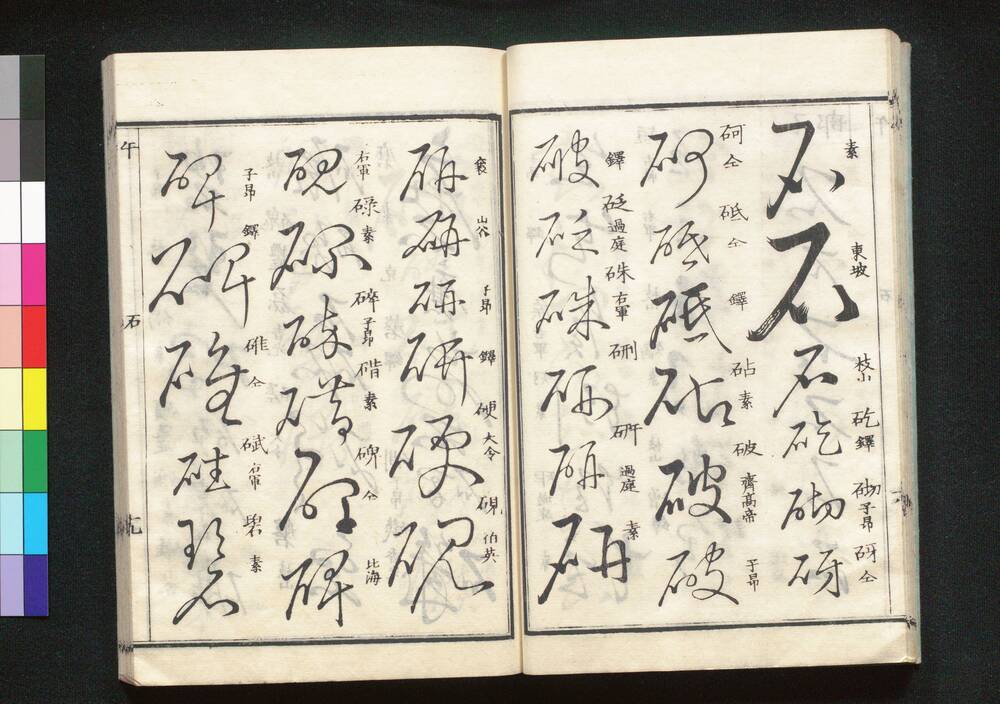 石 素
石 東坡
石 枝山
矻 鐸
砌 子昂
砑 仝
砢 仝
砥 仝
砥 鐸
砧 素
破 齊高帝
破 子昂
破 鐸
砭 過庭
硃 右軍
硎
研 過庭
研 素
研
研 山谷
研 子昂
研 鐸
硬 大令
硯 伯英
硯 右軍
碌 素
碎 子昂
碏 素
碑 仝
碑 北海
碑 子昂
碑 鐸
碓 仝
碔 右軍
碧 素
午
石